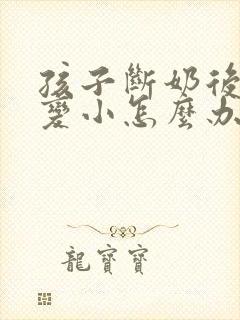 孩子斷奶後
變小怎麼办
龍寶寶